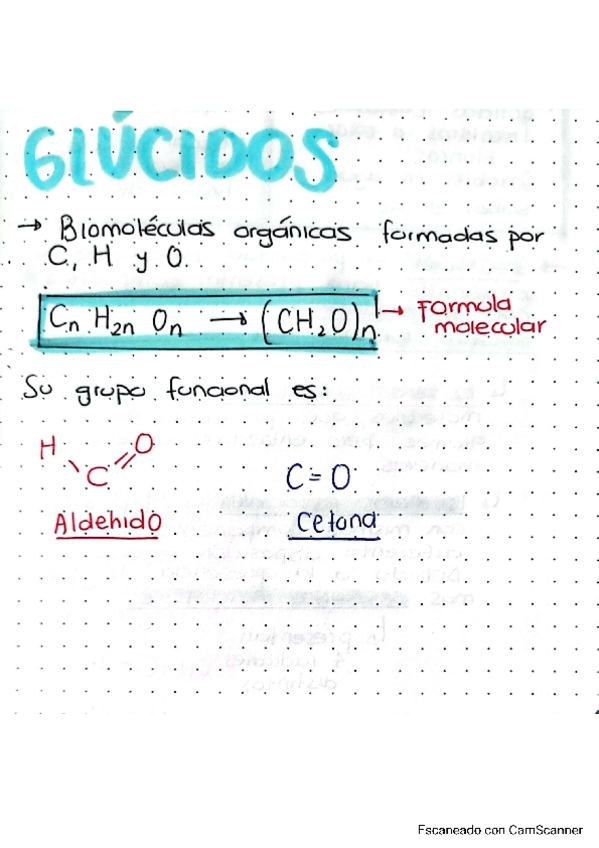 GLÚCIDOS
→ Biomoléculas orgánicas formadas por
C, H y O.
Cn H2n On → (CH2O)n → Formula
molecular
Su grupo funcional es:
H O
C
C=O
Aldehido
Cetona
Escaneado con CamScanner